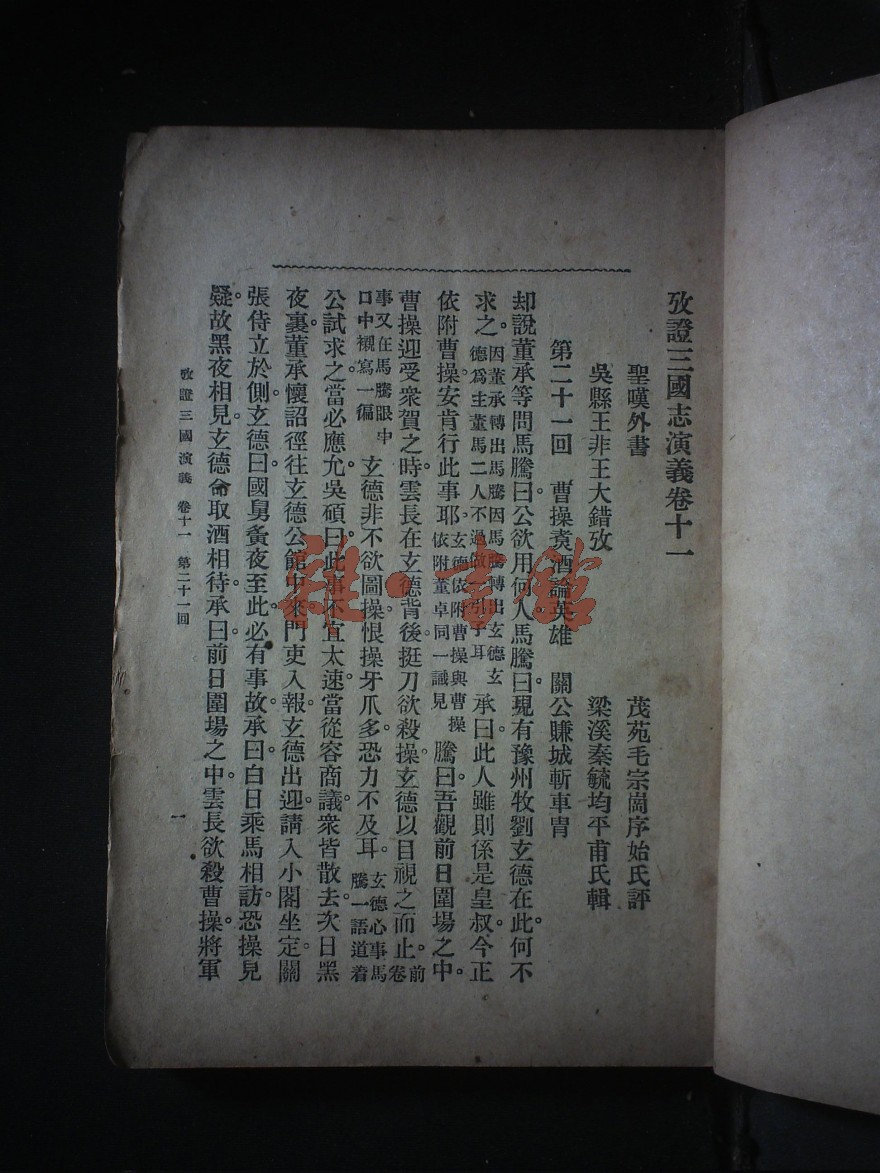 攷證三國志演義卷十一
聖嘆外書
茂苑毛宗崗序始氏評
吳縣王非王大錯攷
梁溪秦毓均平甫氏輯
第二十一回　曹操煑酒論英雄　關公賺城斬車胄
却說董承等問馬騰曰。公欲用何人。馬騰曰。現有豫州牧劉玄德在此。何不
求之。因董承轉出馬騰因馬騰轉出玄德玄德爲主董馬二人不過做一引子耳承曰。此人雖則係是皇叔。今正
依附曹操。安肯行此事耶。玄德依附曹操與曹操依附董卓同一識見騰曰。吾觀前日圍場之中。
曹操迎受衆賀之時。雲長在玄德背後。挺刀欲殺操。玄德以目視之而止。前卷
事又在馬騰眼中口中襯寫一徧玄德非不欲圖操。恨操牙爪多。恐力不及耳。玄德心事馬騰一語道着
公試求之。當必應允。吳碩曰。此事不宜太速。當從容商議。衆皆散去。次日黑
夜裏。董承懷詔。徑往玄德公館中來。門吏入報。玄德出迎。請入小閣坐定。關
張侍立於側。玄德曰。國舅夤夜至此。必有事故。承曰。白日乘馬相訪。恐操見
疑。故黑夜相見。玄德命取酒相待。承曰。前日圍場之中。雲長欲殺曹操。將軍
攷證三國演義　卷十一　第二十一回
一
雅·書館